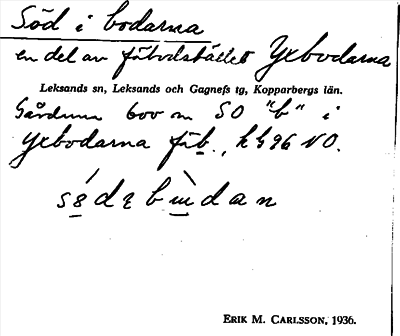 Söd i bodarna
en del av fäbodstället Yxbodarna
Leksands sn, Leksands och Gagnefs tg, Kopparbergs län.
Gårdarna 600 m SO "b" i
Yxbodarna fäb., h G96 NO.
ERIK M. CARLSSON, 1936.